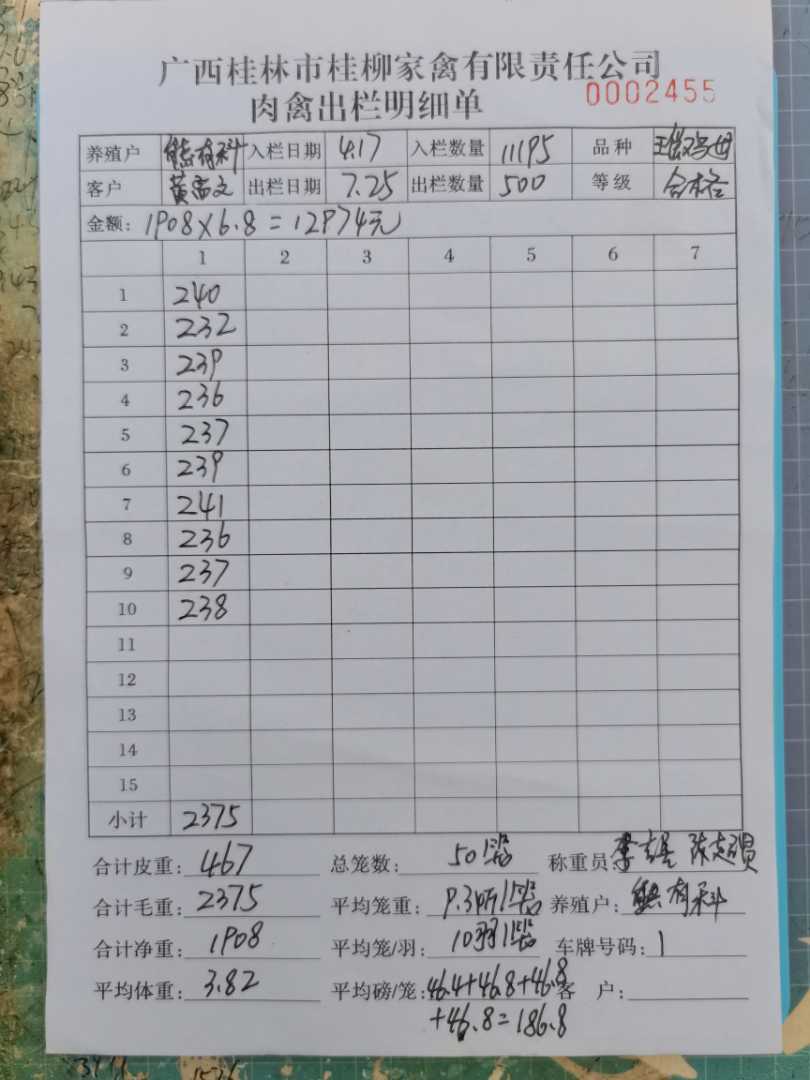 广西桂林市桂柳家禽有限责任公司
肉禽出栏明细单 0002455
养殖户 熊有科 入栏日期 4.17 入栏数量 11195 品种
客户 出栏日期 7.25 出栏数量 500 等级 合格
金额: 1908×6.8=12974元
1 2 3 4 5 6 7
1 240
2 232
3 239
4 236
5 237
6 239
7 241
8 236
9 237
10 238
11
12
13
14
15
小计 2375
合计皮重: 467 总笼数: 50笼 称重员:
合计毛重: 2375 平均笼重: 9.3斤/笼 养殖户: 熊有科
合计净重: 1908 平均笼/羽: 10羽/笼 车牌号码:
平均体重: 3.82 平均磅/笼: 46.4+46.8+46.8 客 户:
+46.8=186.8